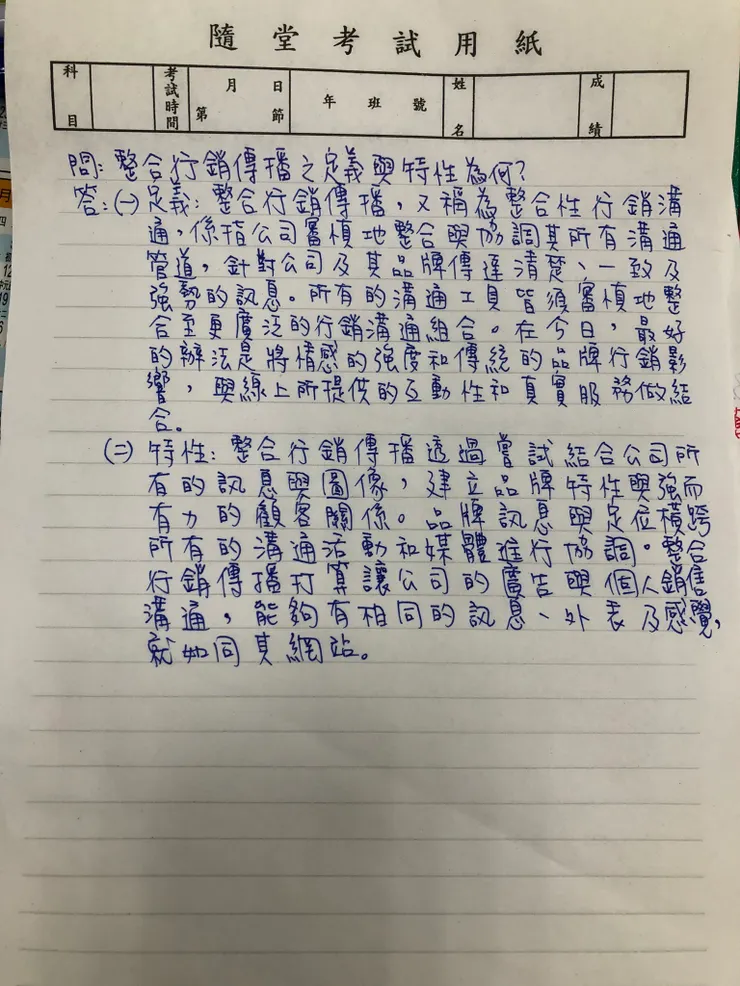 隨堂考試用紙
科目 考試時間 月 日 第 節 年 班 號 姓名 成績
問:整合行銷傳播之定義與特性為何?
答:(一)定義:整合行銷傳播,又稱為整合性行銷溝
通,係指公司審慎地整合與協調其所有溝通
管道,針對公司及其品牌傳達清楚、一致及
強勢的訊息。所有的溝通工具皆須審慎地整
合至更廣泛的行銷溝通組合。在今日,最好
的辦法是將情感的強度和傳統的品牌行銷影
響,與線上所提供的互動性和真實服務做結
合。
(二)特性:整合行銷傳播透過嘗試結合公司所
有的訊息與圖像,建立品牌特性與強而
有力的顧客關係。品牌訊息與定位橫跨
所有的溝通活動和媒體進行協調。整合
行銷傳播打算讓公司的廣告與個人銷售
溝通,能夠有相同的訊息、外表及感覺,
就如同其網站。